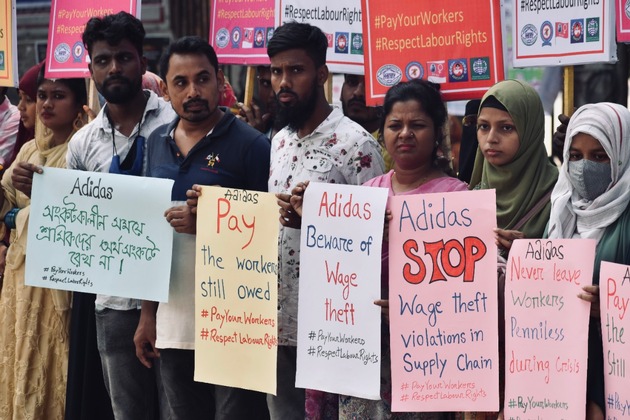 #PayYourWorkers
#RespectLabourRights
#RespectLabourRights
#PayYourWorkers
#RespectLabourRights
#RespectLabourRights
Adidas
সংকটকালীন সময়ে
শ্রমিকদের অর্থসংকটে
রেখ না !
#PayYourWorkers
#RespectLabourRights
Adidas
Pay
the workers
still owed
#PayYourWorkers
#RespectLabourRights
Adidas
Beware of
Wage
theft
#PayYourWorkers
#RespectLabourRights
Adidas
STOP
Wage theft
violations in
Supply Chain
#PayYourWorkers
#RespectLabourRights
Adidas
Never leave
Workers
Penniless
during Crisis
#PayYourWorkers
#RespectLabour
Adidas